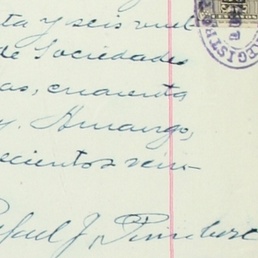 ta y seis vuel-
de Sociedades
as, cuarenta
y. Amargo,
ecientos vein-
Rafael J.
REGISTR